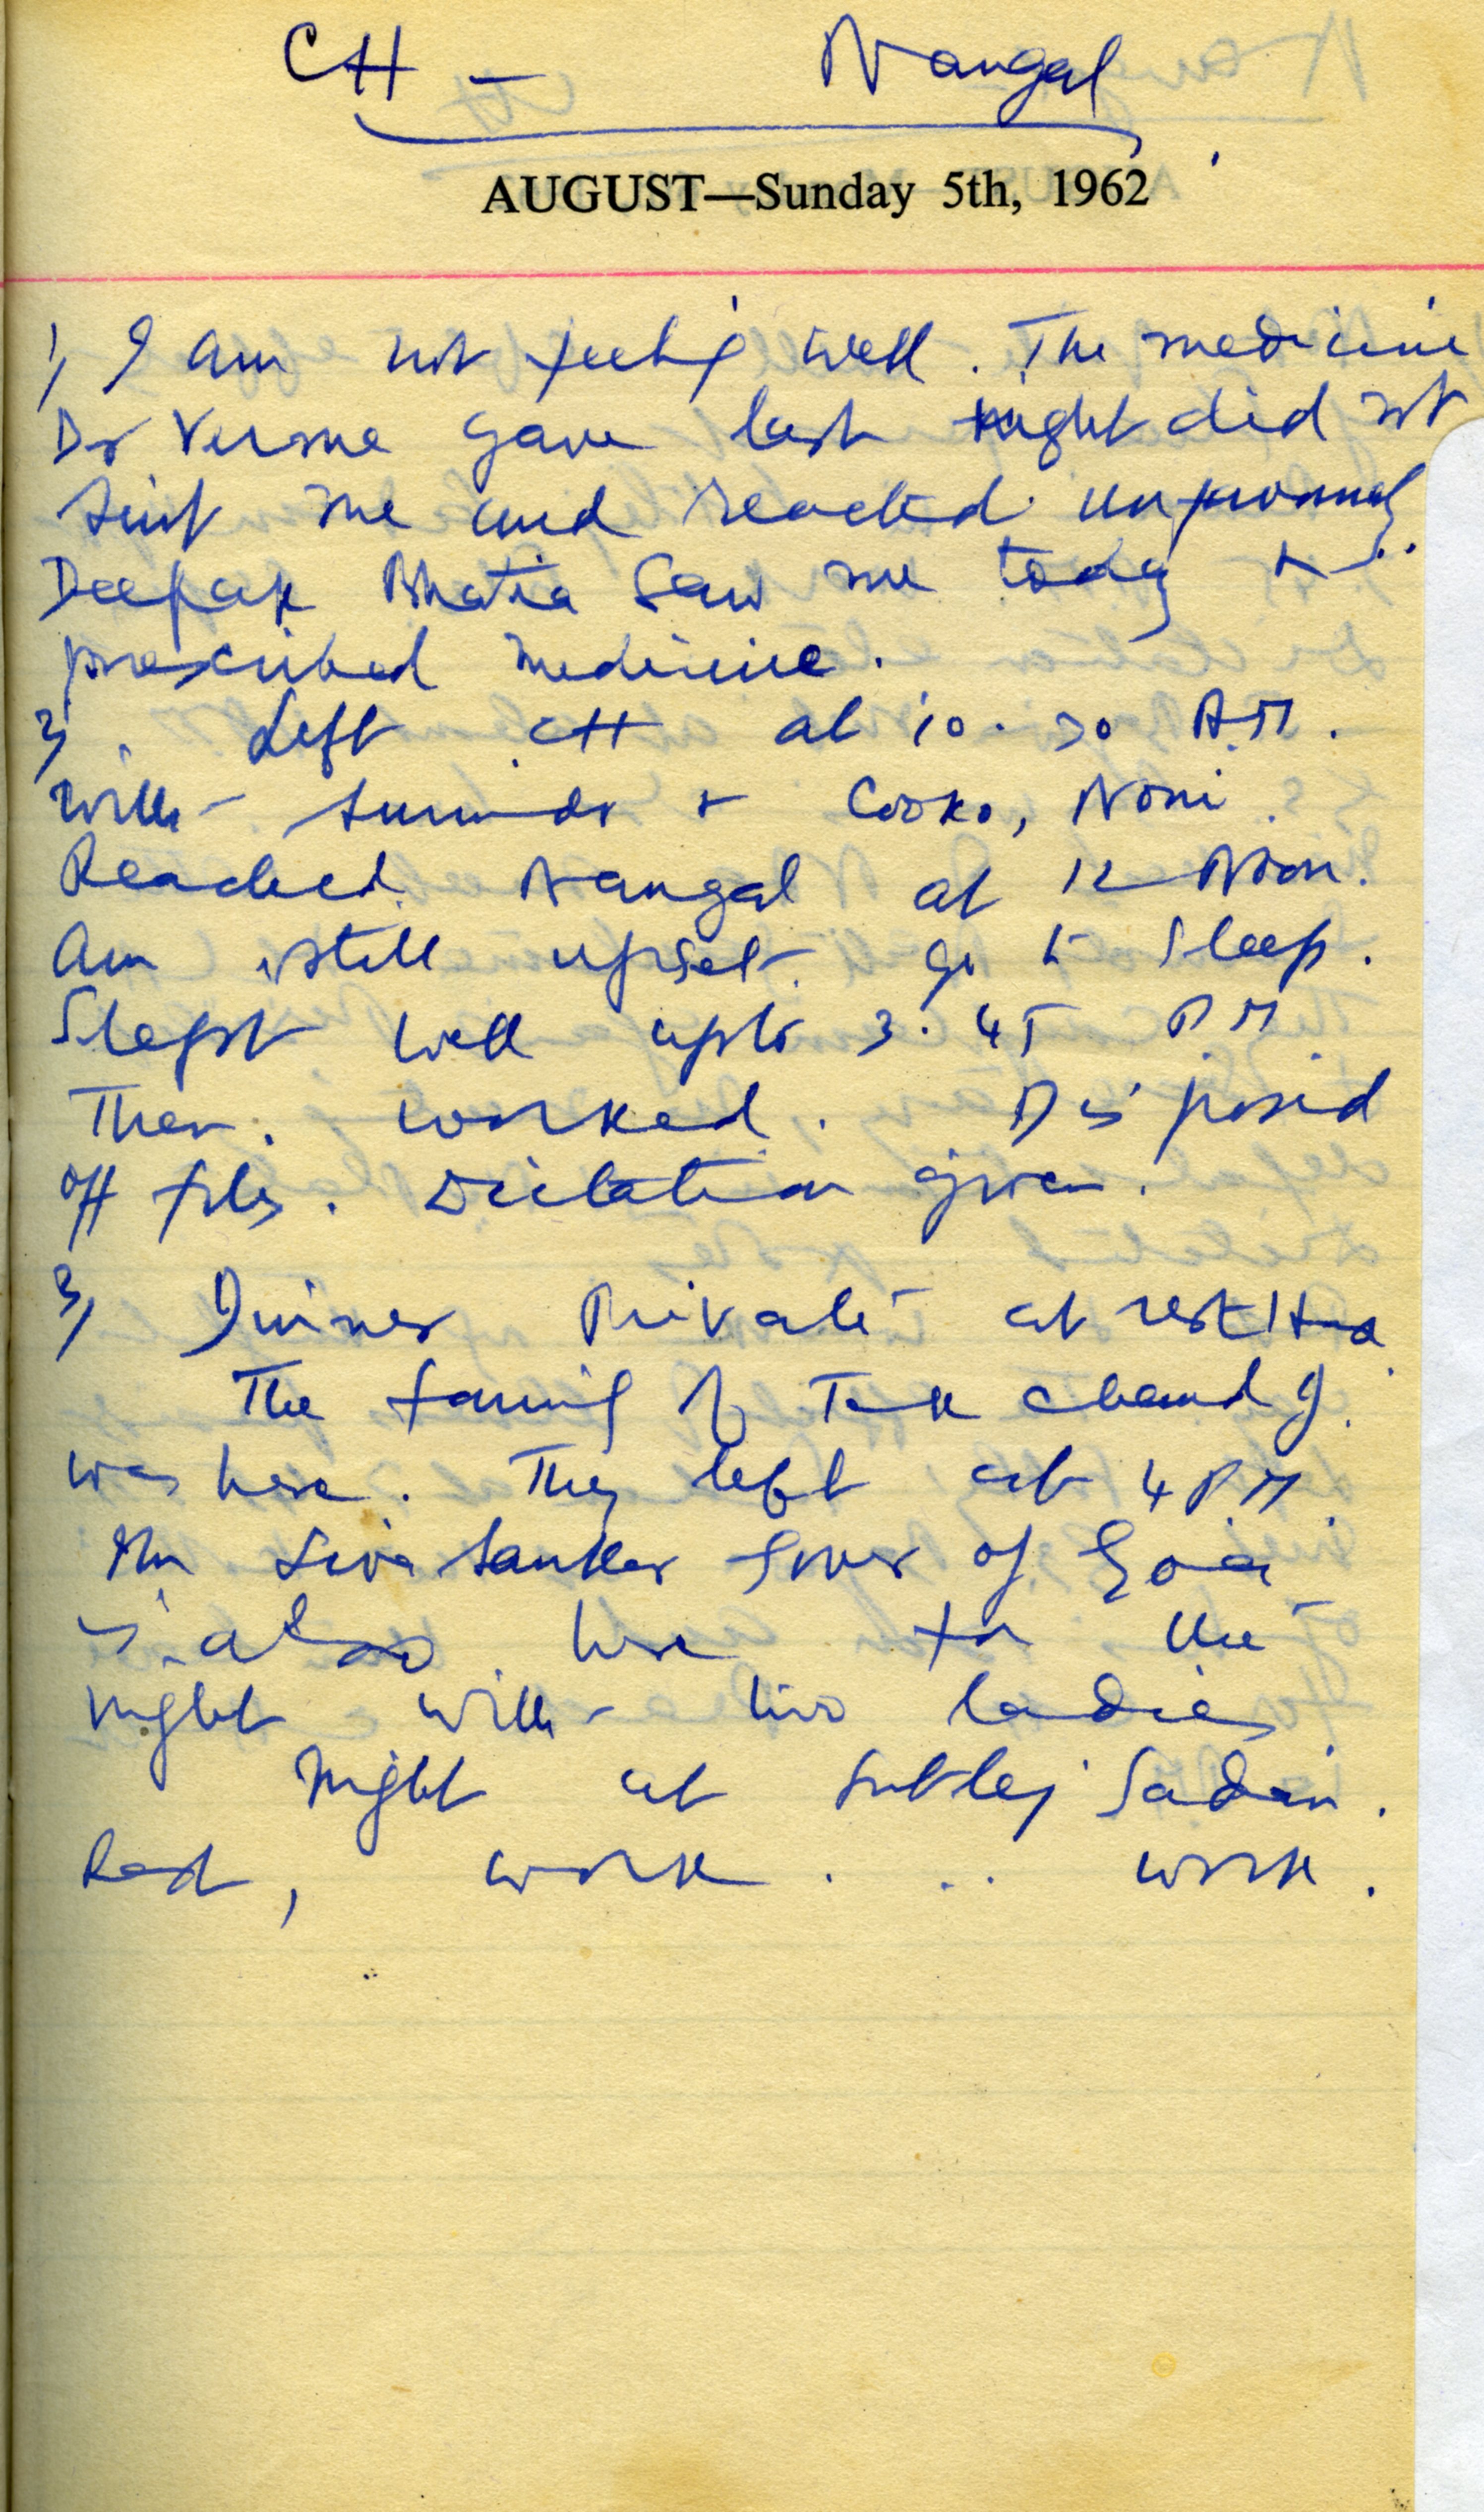 CH - Nangal
AUGUST—Sunday 5th, 1962
1) I am not feeling well. The medicine
Dr Verma gave last night did not
suit me and reacted
Deepak Bhatia saw me today &
prescribed medicine.
2) Left CH at 10.30 AM.
with & Cooko, Noni
Reached Nangal at 12 Noon.
Am still upset. go to sleep.
Slept well upto 3.45 PM
Then worked. Disposed
off files. Dictation given.
3) Dinner Private at rest
The family of Tek chand J.
was here. They left at 4 PM.
Mr Siva Sanker Gover of Goa
is also here for the
night with two ladies
Night at Sutlej Sadan.
Read, work . .. work.